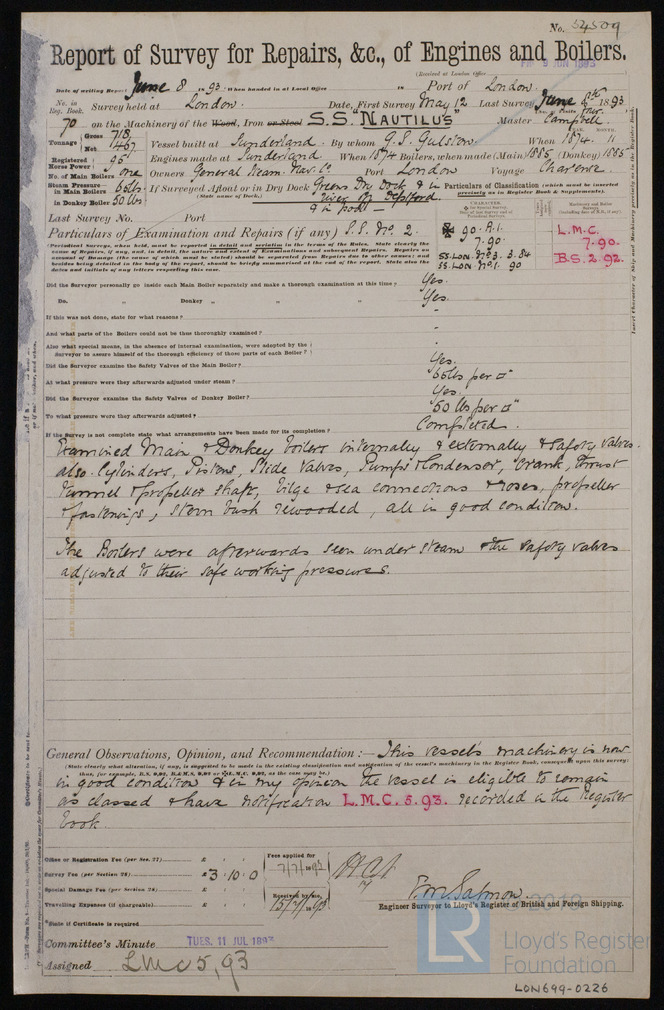 No. 54509
Report of Survey for Repairs, &c., of Engines and Boilers.
(Received at London Office FRI 9 JUN 1893
Date of writing Report June 8 1893 When handed in at Local Office 18 Port of London
No. in Reg. Book. Survey held at London. Date, First Survey May 12 Last Survey June 8th 1893
70 on the Machinery of the Wood, Iron or Steel S.S. "NAUTILUS" Master Campbell
Tonnage Gross 718 Net 467 Vessel built at Sunderland. By whom G. S. Gulston. When 1874. 11
Registered Horse Power 95 Engines made at Sunderland When 1874 Boilers, when made (Main) 1885 (Donkey) 1885
No. of Main Boilers one Owners General Steam Nav. Co. Port London Voyage Charente.
Steam Pressure in Main Boilers 65lbs If Surveyed Afloat or in Dry Dock Greens Dry Dock & in
in Donkey Boiler 50 lbs (State name of Dock.) river off Deptford.
Particulars of Classification (which must be inserted precisely as in Register Book & Supplements).
Last Survey No. Port
Particulars of Examination and Repairs (if any) S.S. No. 2.
90. A.1.
7.90.
SS. LON. No. 3. 3.84
SS. LON. No. 1. 90
L.M.C.
7.90.
B.S. 2.92.
Did the Surveyor personally go inside each Main Boiler separately and make a thorough examination at this time? Yes.
Do. " Donkey " " " " Yes.
If this was not done, state for what reasons? -
And what parts of the Boilers could not be thus thoroughly examined? -
Also what special means, in the absence of internal examination, were adopted by the
Surveyor to assure himself of the thorough efficiency of those parts of each Boiler? -
Did the Surveyor examine the Safety Valves of the Main Boiler? Yes.
At what pressure were they afterwards adjusted under steam? 65lbs per □"
Did the Surveyor examine the Safety Valves of Donkey Boiler? Yes.
To what pressure were they afterwards adjusted? 50 lbs per □"
If the Survey is not complete state what arrangements have been made for its completion? Completed.
Examined Main & Donkey boilers internally & externally & safety valves.
also Cylinders, Pistons, Slide Valves, Pumps & Condenser, Crank, Thrust
tunnel & propeller shaft, bilge & sea connections & roses, propeller
& fastenings, stern bush rewooded, all in good condition.
The Boilers were afterwards seen under steam & the safety valves
adjusted to their safe working pressures.
General Observations, Opinion, and Recommendation:— This vessel's machinery is now
(State clearly what alteration, if any, is suggested to be made in the existing classification and notation of the vessel's machinery in the Register Book, consequent upon this survey:
in good condition & in my opinion the vessel is eligible to remain
as classed & have notification L.M.C. 5.93. recorded in the Register
Book.
Office or Registration Fee (per Sec. 27) £
Survey Fee (per Section 28) £ 3.10.0
Special Damage Fee (per Section 28) £
Travelling Expenses (if chargeable) £
Fees applied for 7/7/1893
Received by me, 15/7/1893
F. M. Salmon.
Engineer Surveyor to Lloyd's Register of British and Foreign Shipping.
State if Certificate is required
Committee's Minute TUES. 11 JUL 1893
Assigned LMC 5,93
LR
2019
Lloyd's Register
Foundation
LON699-0226